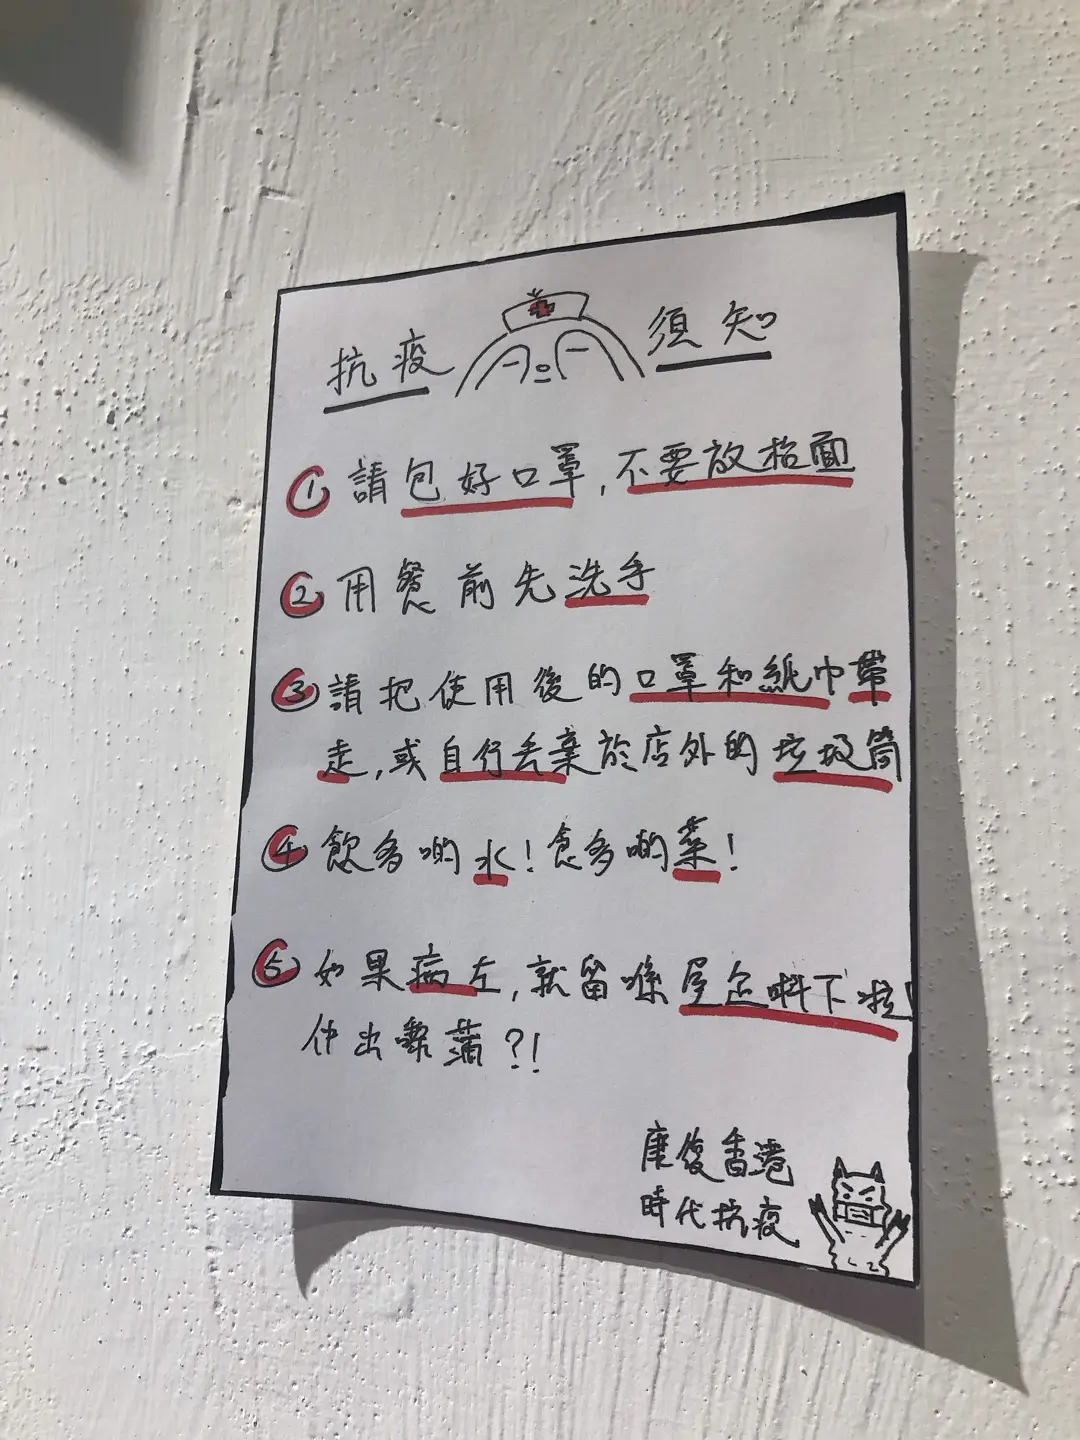 抗疫 須知
① 請包好口罩,不要放枱面
② 用餐前先洗手
③ 請把使用後的口罩和紙巾帶
走,或自行丟棄於店外的垃圾筒
④ 飲多啲水!食多啲菜!
⑤ 如果病左,就留喺屋企唞下啦!
仲出嚟蒲?!
康復香港
時代抗疫